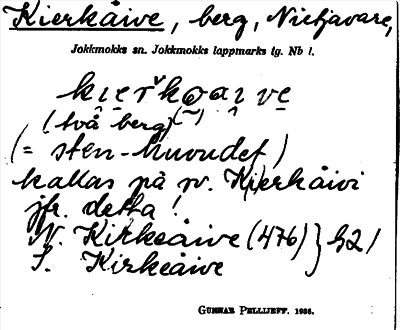 Kierkåive, berg, Nietjavare,
Jokkmokks sn. Jokkmokks lappmarks tg. Nb l.
kieřkoaive
(två berg)
(= sten-huvudet)
kallas på sv. K(i)erkåivi
jfr. detta!
N. Kirkeåive (476) } h2/
S. Kirkeåive
GUNNAR PELLIJEFF. 1936.